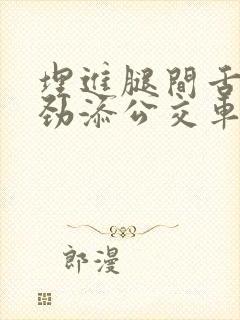 埋進腿間舌
劲添公交車
郎漫